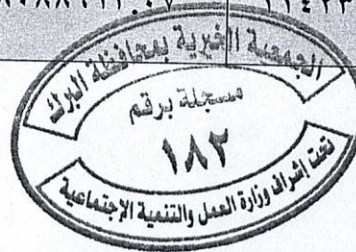 الجمعية الخيرية بمحافظة البرك
مسجلة برقم
١٨٢
تحت إشراف وزارة العمل والتنمية الإجتماعية